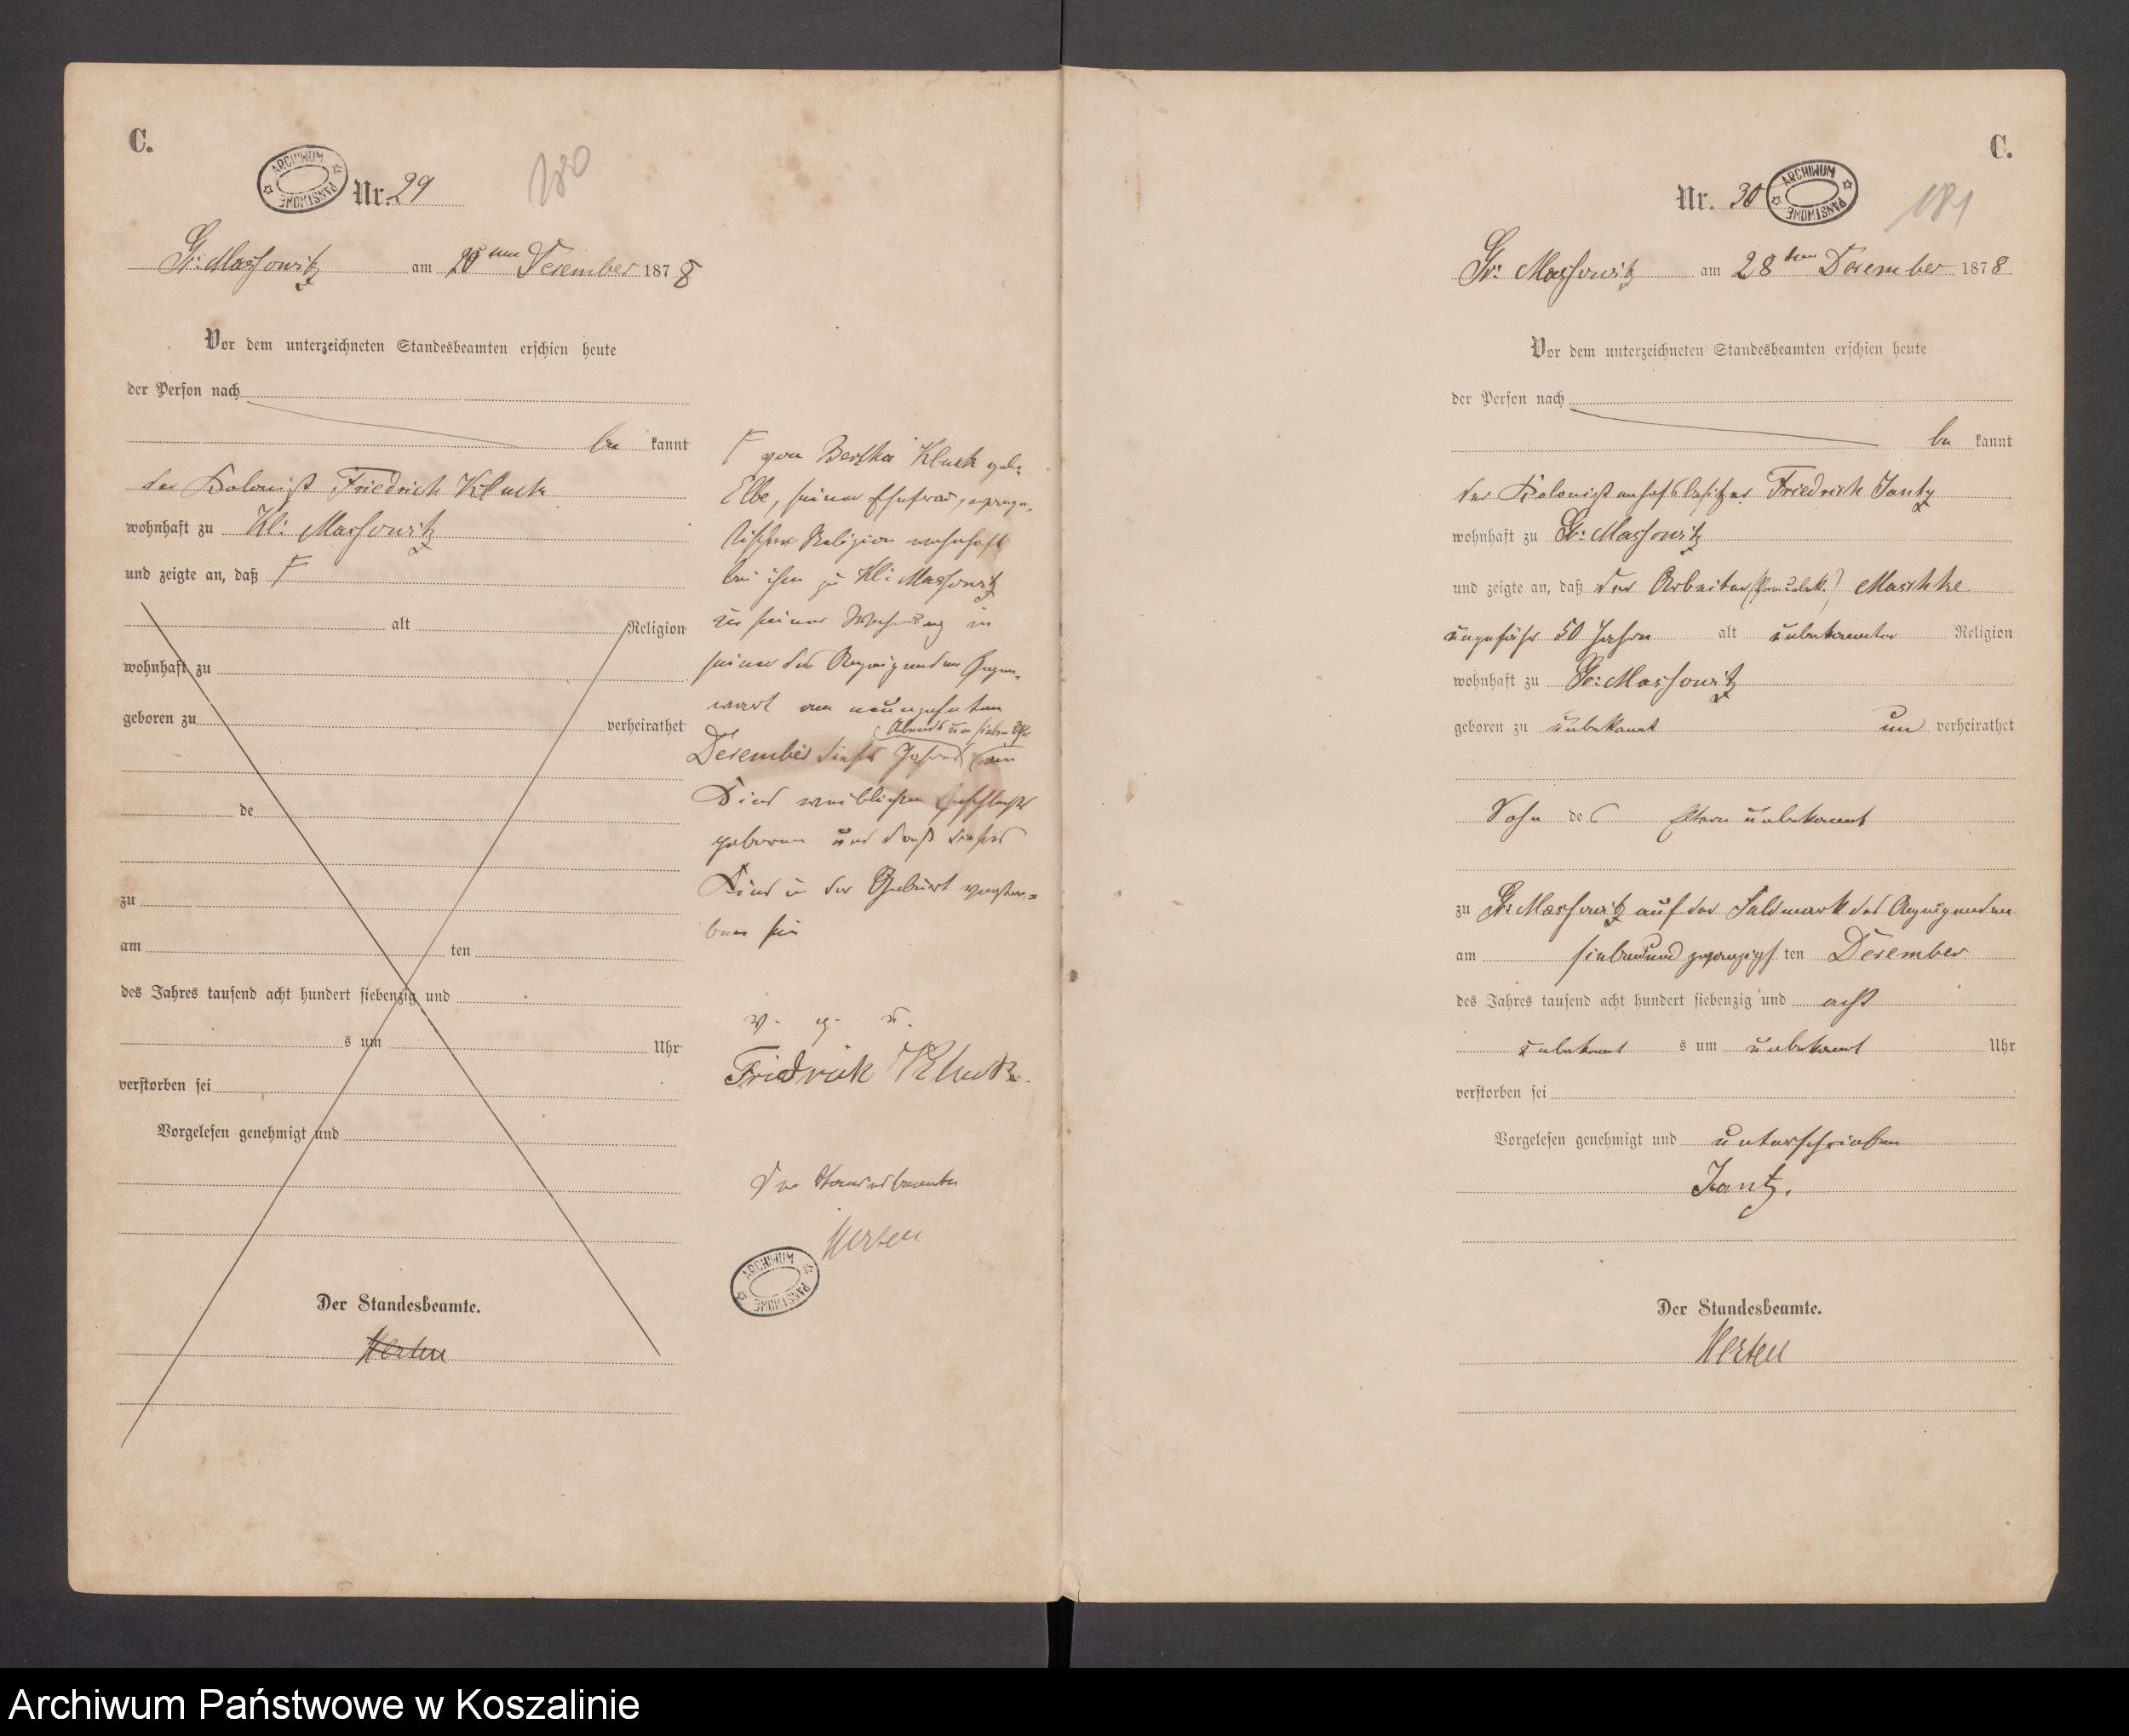 C.
ARCHIWUM PAŃSTWOWE
Nr. 29
180
Gr: Massowitz am 20ten Desember 1878
Vor dem unterzeichneten Standesbeamten erschien heute
der Person nach
be kannt
der Kolonist Friedrich Kluck
wohnhaft zu Kl: Massowitz
und zeigte an, daß F
alt Religion
wohnhaft zu
geboren zu verheirathet
de
zu
am ten
des Jahres tausend acht hundert siebenzig und
s um Uhr
verstorben sei
Vorgelesen genehmigt und
Der Standesbeamte.
Merten
F von Bertha Kluck geb:
Elbe, seiner Ehefrau, evange-
lischer Religion wohnhaft
bei ihm zu Kl: Massowitz
zu seiner Wohnung in
seiner des Anzeigenden Gegen-
wart am neunzehnten
Abends um sieben Uhr
Desember dieses Jahres ein
Kind weiblichen Geschlechts
geboren und daß dieses
Kind in der Geburt verstor-
ben sei
v. g. u.
Fridrick Kluck.
Der Standesbeamte
Merten
ARCHIWUM PAŃSTWOWE
C.
Nr. 30
ARCHIWUM PAŃSTWOWE
181
Gr: Massowitz am 28ten Desember 1878
Vor dem unterzeichneten Standesbeamten erschien heute
der Person nach
be kannt
der Kolonistenhofsbesitzer Friedrich Jantz
wohnhaft zu Gr: Massowitz
und zeigte an, daß der Arbeiter Maschke
ungefähr 50 Jahre alt unbekannter Religion
wohnhaft zu Gr: Massowitz
geboren zu unbekannt un verheirathet
Sohn der Eltern unbekannt
zu Gr: Massowitz auf der Feldmark des Anzeigenden
am siebenundzwanzigs ten Desember
des Jahres tausend acht hundert siebenzig und acht
unbekannt s um unbekannt Uhr
verstorben sei
Vorgelesen genehmigt und unterschrieben
Jantz.
Der Standesbeamte.
Merten
Archiwum Państwowe w Koszalinie